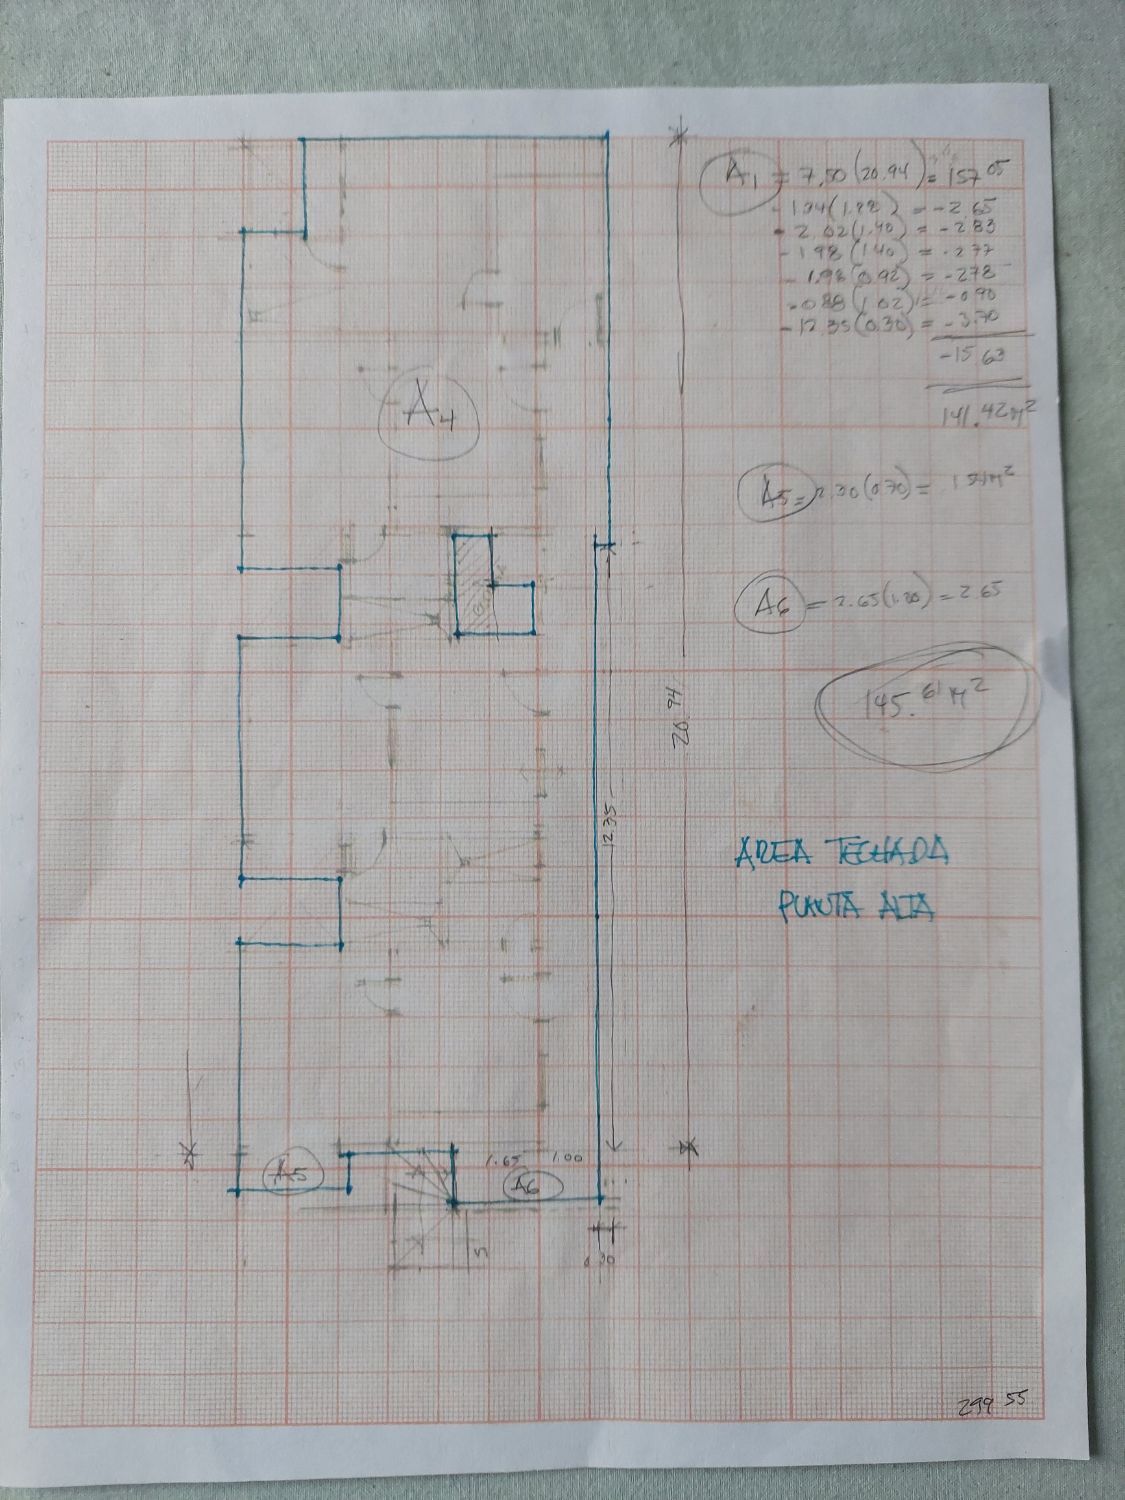 A1 = 7.50(20.94) = 157.05
= -2.65
- 2.02(1.40) = -2.83
- 1.98(1.40) = -2.77
- 1.98(0.92) = -2.78
- 0.88(1.02) = -0.90
- 12.35(0.30) = -3.70
-15.63
141.42 M²
A4
A5 = 2.30(0.70) =
A6 = 2.65(1.00) = 2.65
145.61 M²
20.94
12.35
AREA TECHADA
PLANTA ALTA
1.65 1.00
A5
A6
0.30
299.55